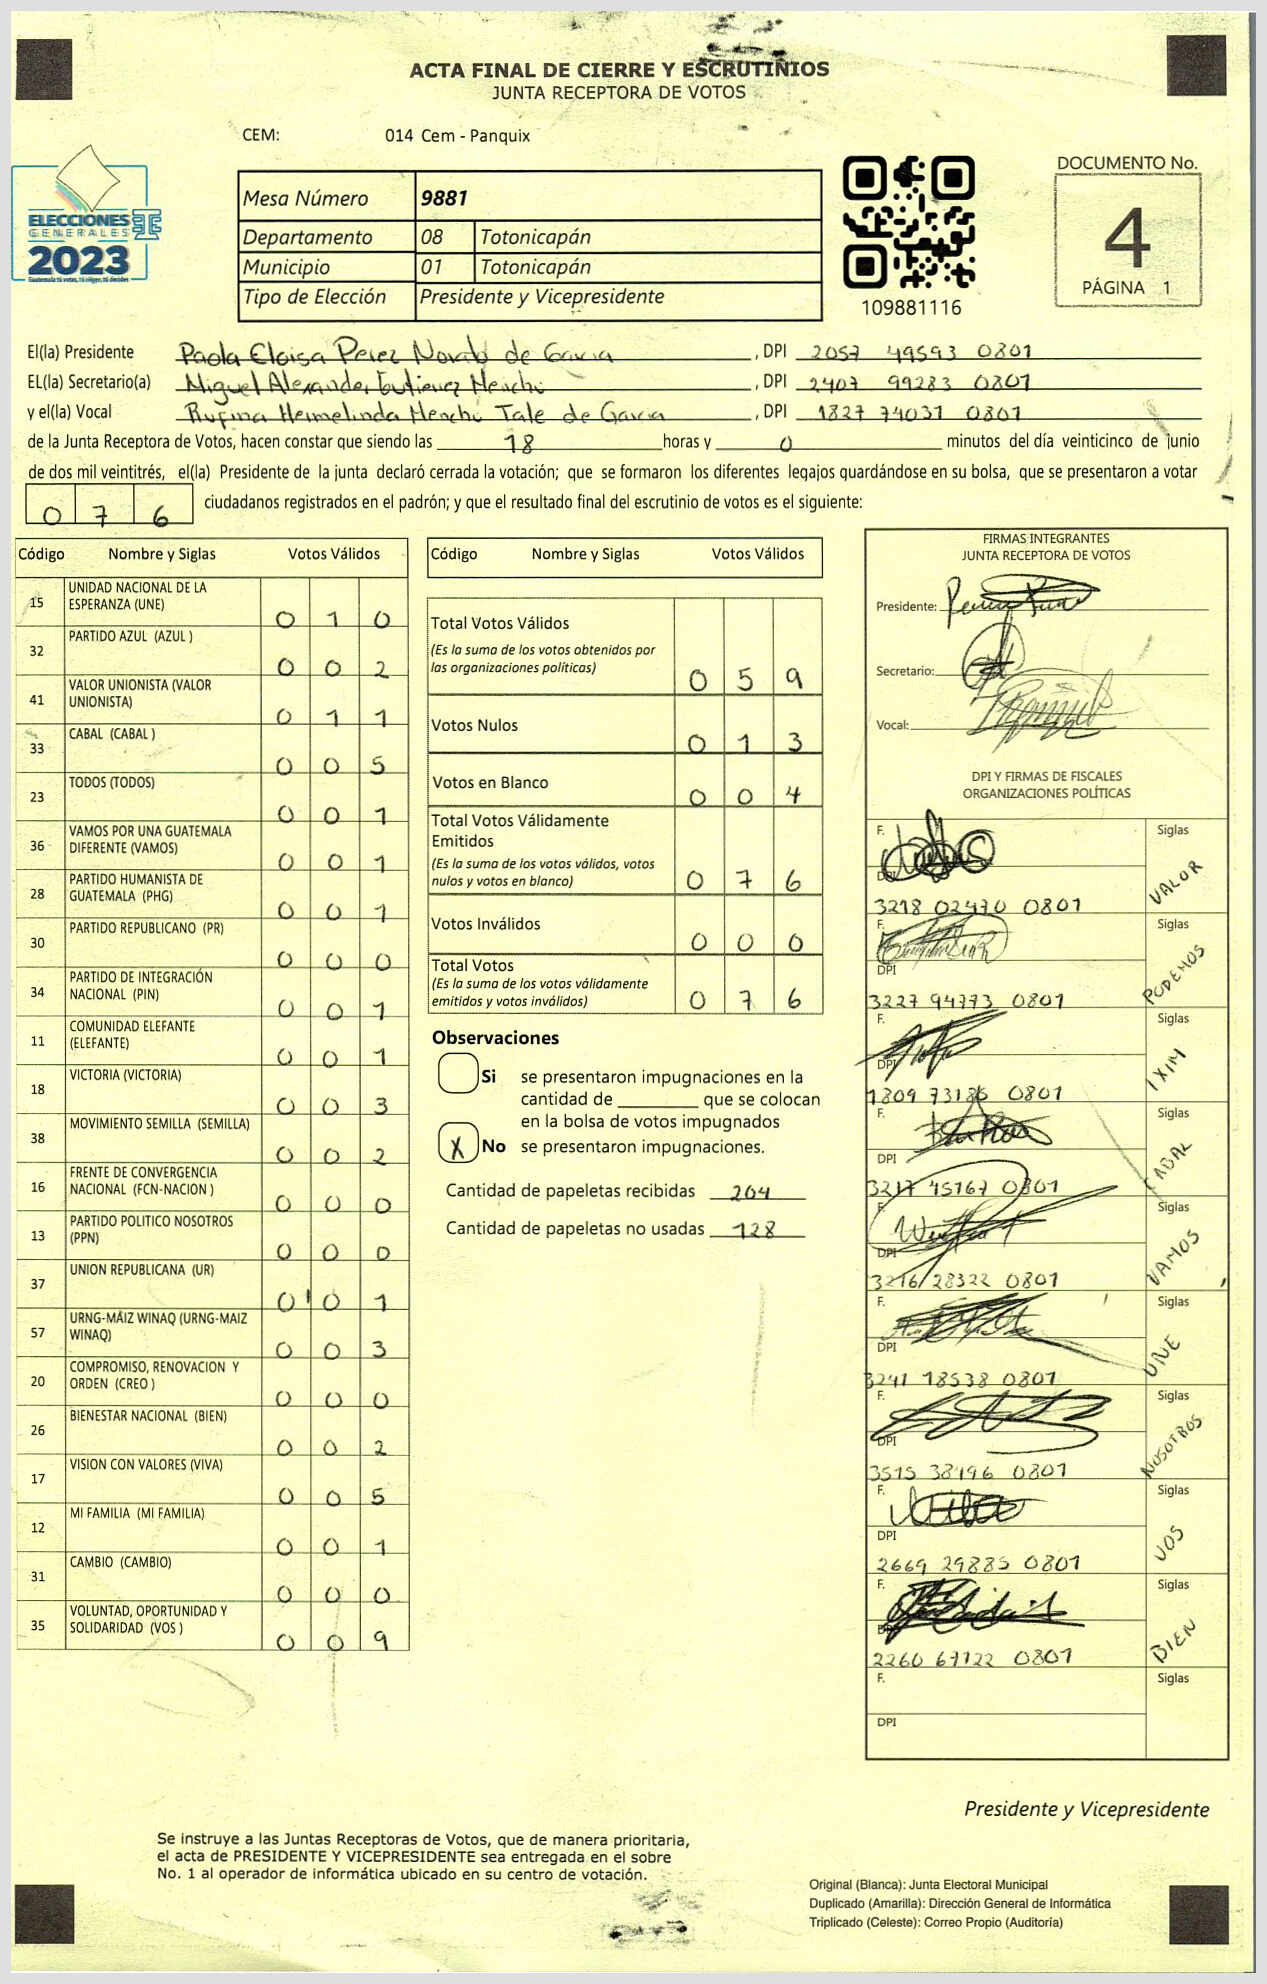 ACTA FINAL DE CIERRE Y ESCRUTINIOS
JUNTA RECEPTORA DE VOTOS
CEM: 014 Cem - Panquix
ELECCIONES
GENERALES
2023
Mesa Número 9881
Departamento 08 Totonicapán
Municipio 01 Totonicapán
Tipo de Elección Presidente y Vicepresidente
109881116
DOCUMENTO No.
4
PÁGINA 1
El(la) Presidente Paola Eloisa Perez de Garcia, DPI 2057 49593 0801
EL(la) Secretario(a) Miguel Alexander Gutierrez Menchú, DPI 2407 99283 0801
y el(la) Vocal Rufina Hermelinda Menchú Tale de Garcia, DPI 1827 74031 0801
de la Junta Receptora de Votos, hacen constar que siendo las 18 horas y 0 minutos del día veinticinco de junio
de dos mil veintitrés, el(la) Presidente de la junta declaró cerrada la votación; que se formaron los diferentes legajos guardándose en su bolsa, que se presentaron a votar
0 7 6 ciudadanos registrados en el padrón; y que el resultado final del escrutinio de votos es el siguiente:
Código Nombre y Siglas Votos Válidos
15 UNIDAD NACIONAL DE LA ESPERANZA (UNE) 0 1 0
32 PARTIDO AZUL (AZUL ) 0 0 2
41 VALOR UNIONISTA (VALOR UNIONISTA) 0 1 1
33 CABAL (CABAL ) 0 0 5
23 TODOS (TODOS) 0 0 1
36 VAMOS POR UNA GUATEMALA DIFERENTE (VAMOS) 0 0 1
28 PARTIDO HUMANISTA DE GUATEMALA (PHG) 0 0 1
30 PARTIDO REPUBLICANO (PR) 0 0 0
34 PARTIDO DE INTEGRACIÓN NACIONAL (PIN) 0 0 1
11 COMUNIDAD ELEFANTE (ELEFANTE) 0 0 1
18 VICTORIA (VICTORIA) 0 0 3
38 MOVIMIENTO SEMILLA (SEMILLA) 0 0 2
16 FRENTE DE CONVERGENCIA NACIONAL (FCN-NACION ) 0 0 0
13 PARTIDO POLITICO NOSOTROS (PPN) 0 0 0
37 UNION REPUBLICANA (UR) 0 0 1
57 URNG-MAIZ WINAQ (URNG-MAIZ WINAQ) 0 0 3
20 COMPROMISO, RENOVACION Y ORDEN (CREO ) 0 0 0
26 BIENESTAR NACIONAL (BIEN) 0 0 2
17 VISION CON VALORES (VIVA) 0 0 5
12 MI FAMILIA (MI FAMILIA) 0 0 1
31 CAMBIO (CAMBIO) 0 0 0
35 VOLUNTAD, OPORTUNIDAD Y SOLIDARIDAD (VOS ) 0 0 9
Código Nombre y Siglas Votos Válidos
Total Votos Válidos 0 5 9
(Es la suma de los votos obtenidos por
las organizaciones políticas)
Votos Nulos 0 1 3
Votos en Blanco 0 0 4
Total Votos Válidamente
Emitidos 0 7 6
(Es la suma de los votos válidos, votos
nulos y votos en blanco)
Votos Inválidos 0 0 0
Total Votos 0 7 6
(Es la suma de los votos válidamente
emitidos y votos inválidos)
Observaciones
Si se presentaron impugnaciones en la
cantidad de ________ que se colocan
en la bolsa de votos impugnados
X No se presentaron impugnaciones.
Cantidad de papeletas recibidas 204
Cantidad de papeletas no usadas 128
FIRMAS INTEGRANTES
JUNTA RECEPTORA DE VOTOS
Presidente:
Secretario:
Vocal:
DPI Y FIRMAS DE FISCALES
ORGANIZACIONES POLÍTICAS
F. Siglas VALOR
DPI 3218 02470 0801
F. Siglas PODEMOS
DPI 3227 94773 0801
F. Siglas IXIM
DPI 1809 73186 0801
F. Siglas CABAL
DPI 3217 45167 0801
F. Siglas VAMOS
DPI 3216 28322 0801
F. Siglas UNE
DPI 3241 18538 0801
F. Siglas NOSOTROS
DPI 3515 38496 0801
F. Siglas VOS
DPI 2669 29885 0801
F. Siglas BIEN
DPI 2260 67122 0801
F. Siglas
DPI
Presidente y Vicepresidente
Se instruye a las Juntas Receptoras de Votos, que de manera prioritaria,
el acta de PRESIDENTE Y VICEPRESIDENTE sea entregada en el sobre
No. 1 al operador de informática ubicado en su centro de votación.
Original (Blanca): Junta Electoral Municipal
Duplicado (Amarilla): Dirección General de Informática
Triplicado (Celeste): Correo Propio (Auditoría)